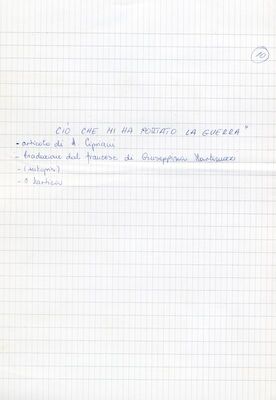 10
CIÒ CHE MI HA PORTATO LA GUERRA"
- articolo di A Cipriani
- traduzione dal francese di Giuseppina Martinucci
- (autografo)
- 2